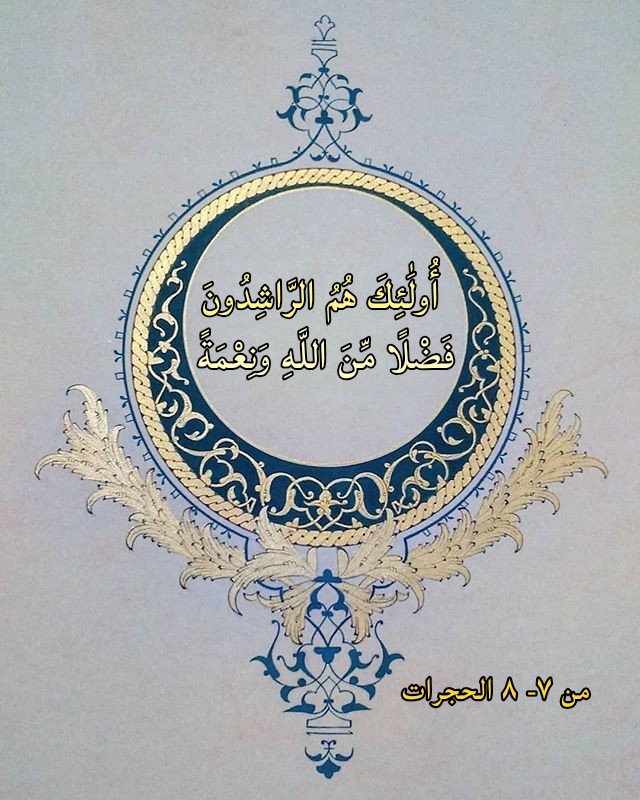 أُولَٰئِكَ هُمُ الرَّاشِدُونَ
فَضْلًا مِّنَ اللَّهِ وَنِعْمَةً
من ٧- ٨ الحجرات